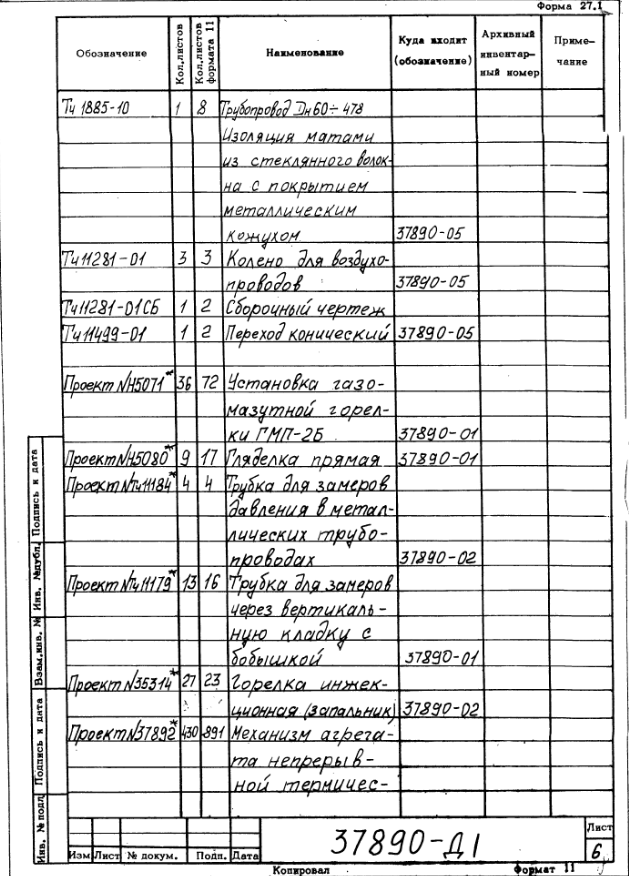 Форма 27.1
Обозначение Кол.листов Кол.листов формата 11 Наименование Куда входит (обозначение) Архивный инвентарный номер Примечание
Тч 1885-10 1 8 Трубопровод Дн60÷478
Изоляция матами
из стеклянного волок-
на с покрытием
металлическим
кожухом 37890-05
Тч11281-01 3 3 Колено для воздухо-
проводов 37890-05
Тч11281-01СБ 1 2 Сборочный чертеж
Тч11499-01 1 2 Переход конический 37890-05
Проект №Н5071* 36 72 Установка газо-
мазутной горел-
ки ГМП-2Б 37890-01
Проект №Н5080* 9 17 Гляделка прямая 37890-01
Проект №Тч11184* 4 4 Трубка для замеров
давления в метал-
лических трубо-
проводах 37890-02
Проект №Тч11179* 13 16 Трубка для замеров
через вертикаль-
ную кладку с
бобышкой 37890-01
Проект №35314* 27 23 Горелка инжек-
ционная (запальник) 37890-02
Проект №37892* 430 891 Механизм агрега-
та непрерыв-
ной термичес-
Инв. № подл. Подпись и дата Взам.инв. № Инв. №дубл. Подпись и дата
37890-Д1
Лист
6
Изм Лист № докум. Подп. Дата
Копировал Формат 11